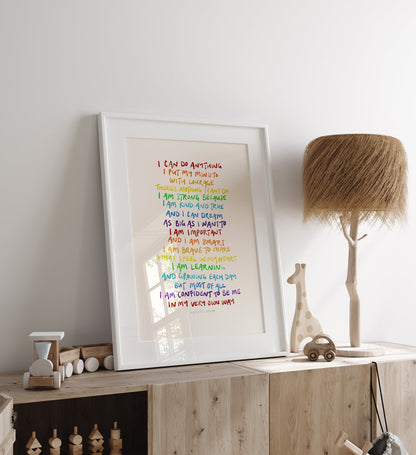 I CAN DO ANYTHING
I PUT MY MIND TO
WITH COURAGE
THERE'S NOTHING I CAN'T DO
I AM STRONG BECAUSE
I AM KIND AND TRUE
AND I CAN DREAM
AS BIG AS I WANT TO
I AM IMPORTANT
AND I AM SMART
I AM BRAVE TO SHARE
WHAT I FEEL IN MY HEART
I AM LEARNING
AND GROWING EACH DAY
BUT MOST OF ALL
I AM CONFIDENT TO BE ME
IN MY VERY OWN WAY